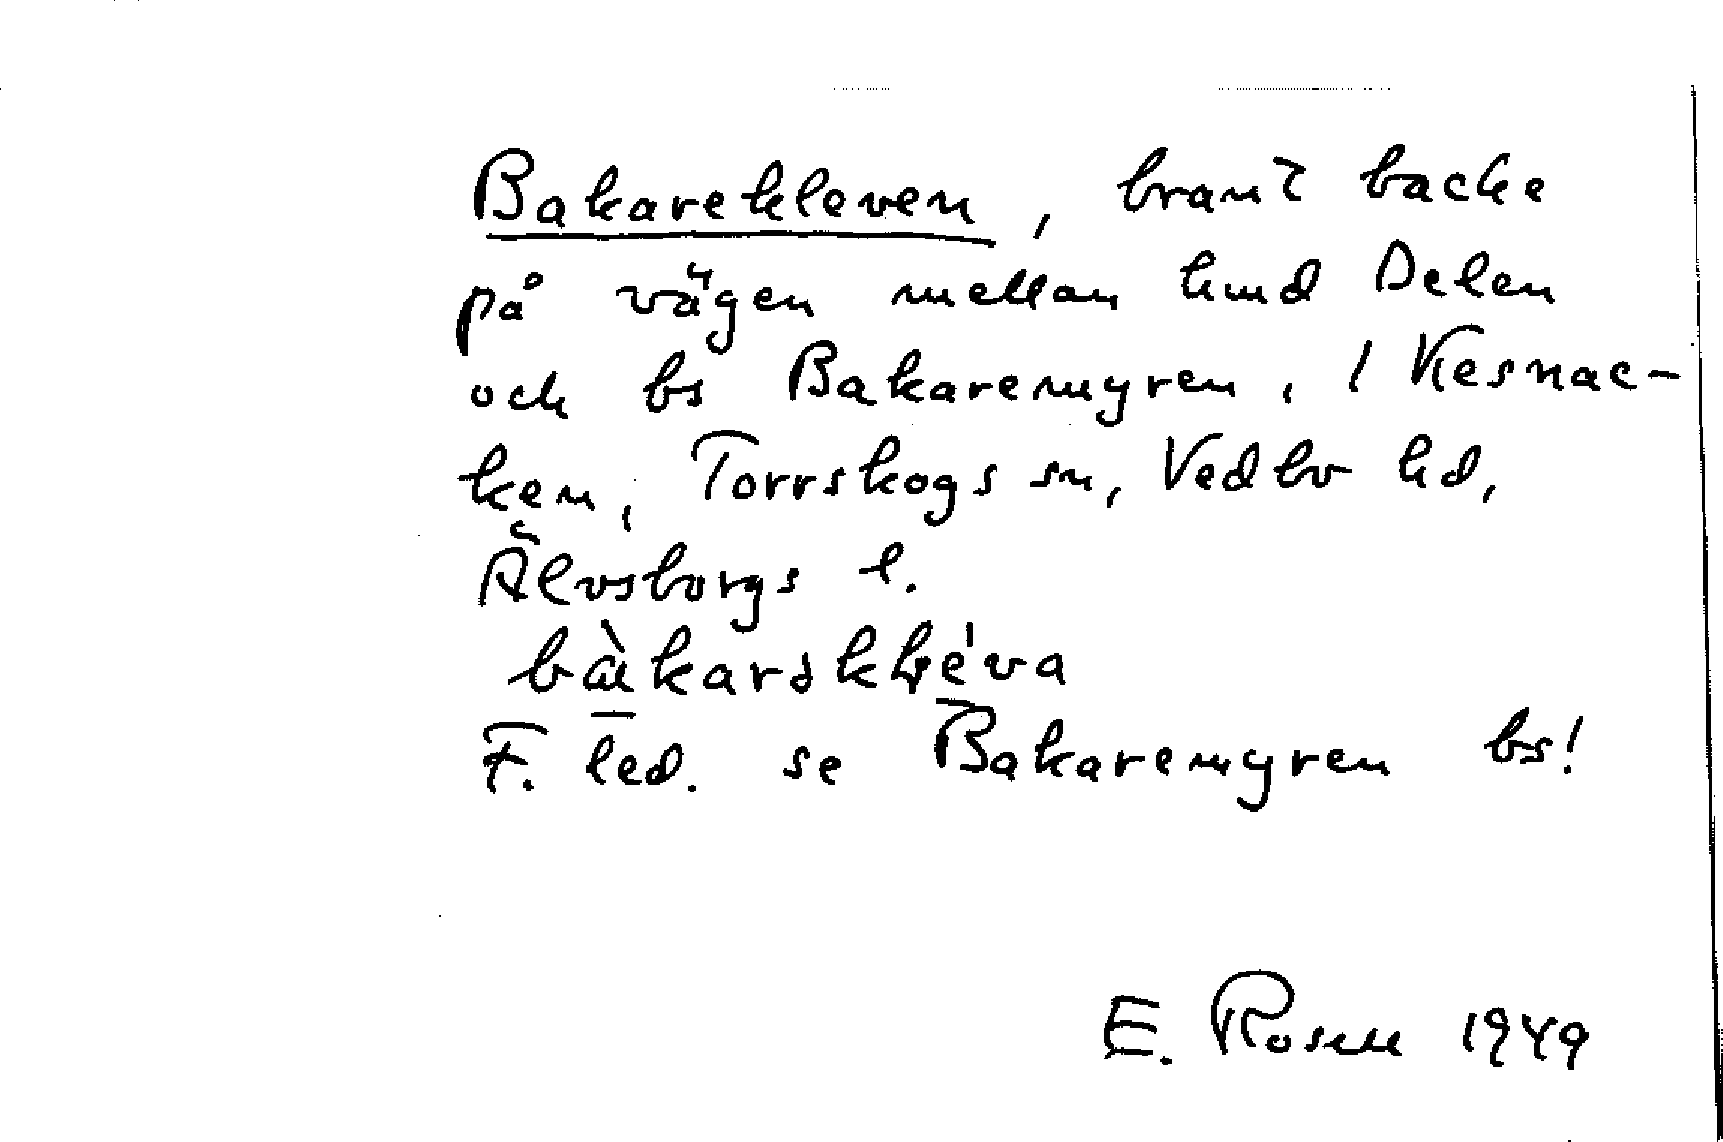 Bakarekleven, brant backe
på vägen mellan hmd Delen
och bs Bakaremyren, 1 Kesnac-
ken, Torrskogs sn, Vedbo hd,
Älvsborgs l.
F. led. se Bakaremyren bs!
E. Rosell 1949